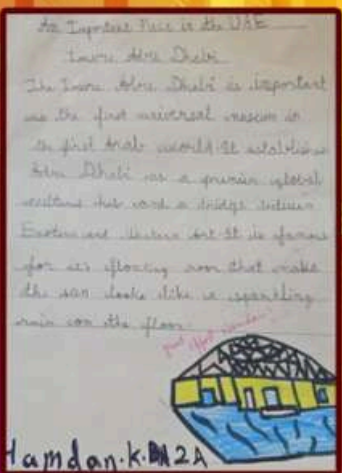 An Important Place in the UAE
Louvre Abu Dhabi
The Louvre Abu Dhabi is important
as the first universal museum in
the first Arab world. It establishes
Abu Dhabi as a premier global
culture hub and a bridge between
Eastern and Western Art. It is famous
for it's floating roof that make
the sun looks like a sparkling
rain on the floor.
Hamdan.K.
2A